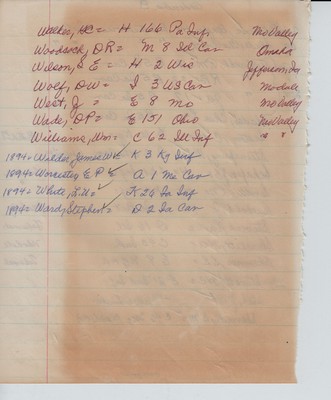 Walker, HC = H 166 Pa Inf, Mo Valley
Woodcock, DR = M 8 Ill Cav Omaha
Wilson, S E = H 2 Wis Jefferson, Ia
Wolf, D W = I 3 US Cav Modale
West, J = E 8 Mo Mo Valley
Wade, O P = E 151 Ohio Mo Valley
Williams, Wm = C 62 Ill Inf " "
1894 = Wilder, James W = K 3 Ky Inf
1894 = Worcester, E P = A 1 Me Cav
1894 = White, L W = K 29 Ia Inf
1894 = Ward, Stephen = D 2 Ia Cav